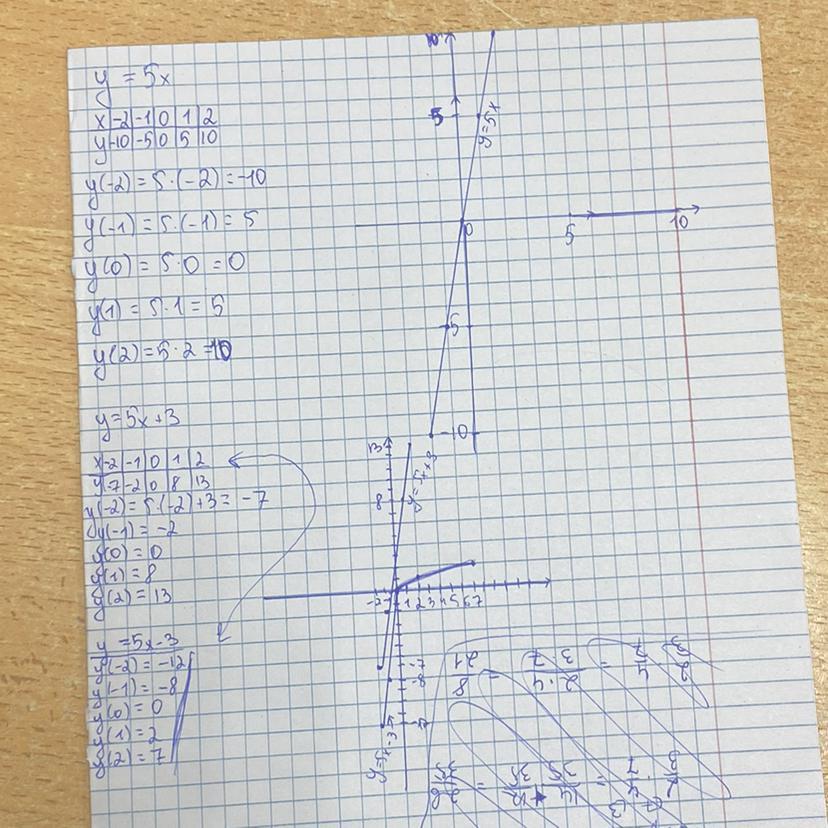 y = 5x
x -2 -1 0 1 2
y -10 -5 0 5 10
y(-2) = 5·(-2) = -10
y(-1) = 5·(-1) = 5
y(0) = 5·0 = 0
y(1) = 5·1 = 5
y(2) = 5·2 = 10
y = 5x+3
x -2 -1 0 1 2
y -7 -2 0 8 13
y(-2) = 5·(-2)+3 = -7
y(-1) = -2
y(0) = 0
y(1) = 8
y(2) = 13
y = 5x-3
y(-2) = -12
y(-1) = -8
y(0) = 0
y(1) = 2
y(2) = 7
10
5
y=5x
0
5
10
-5
-10
13
8
-2 -1 1 2 3 4 5 6 7
-7
-8
y=5x-3
2/3 · 4/7 = 2·4/3·7 = 8/21